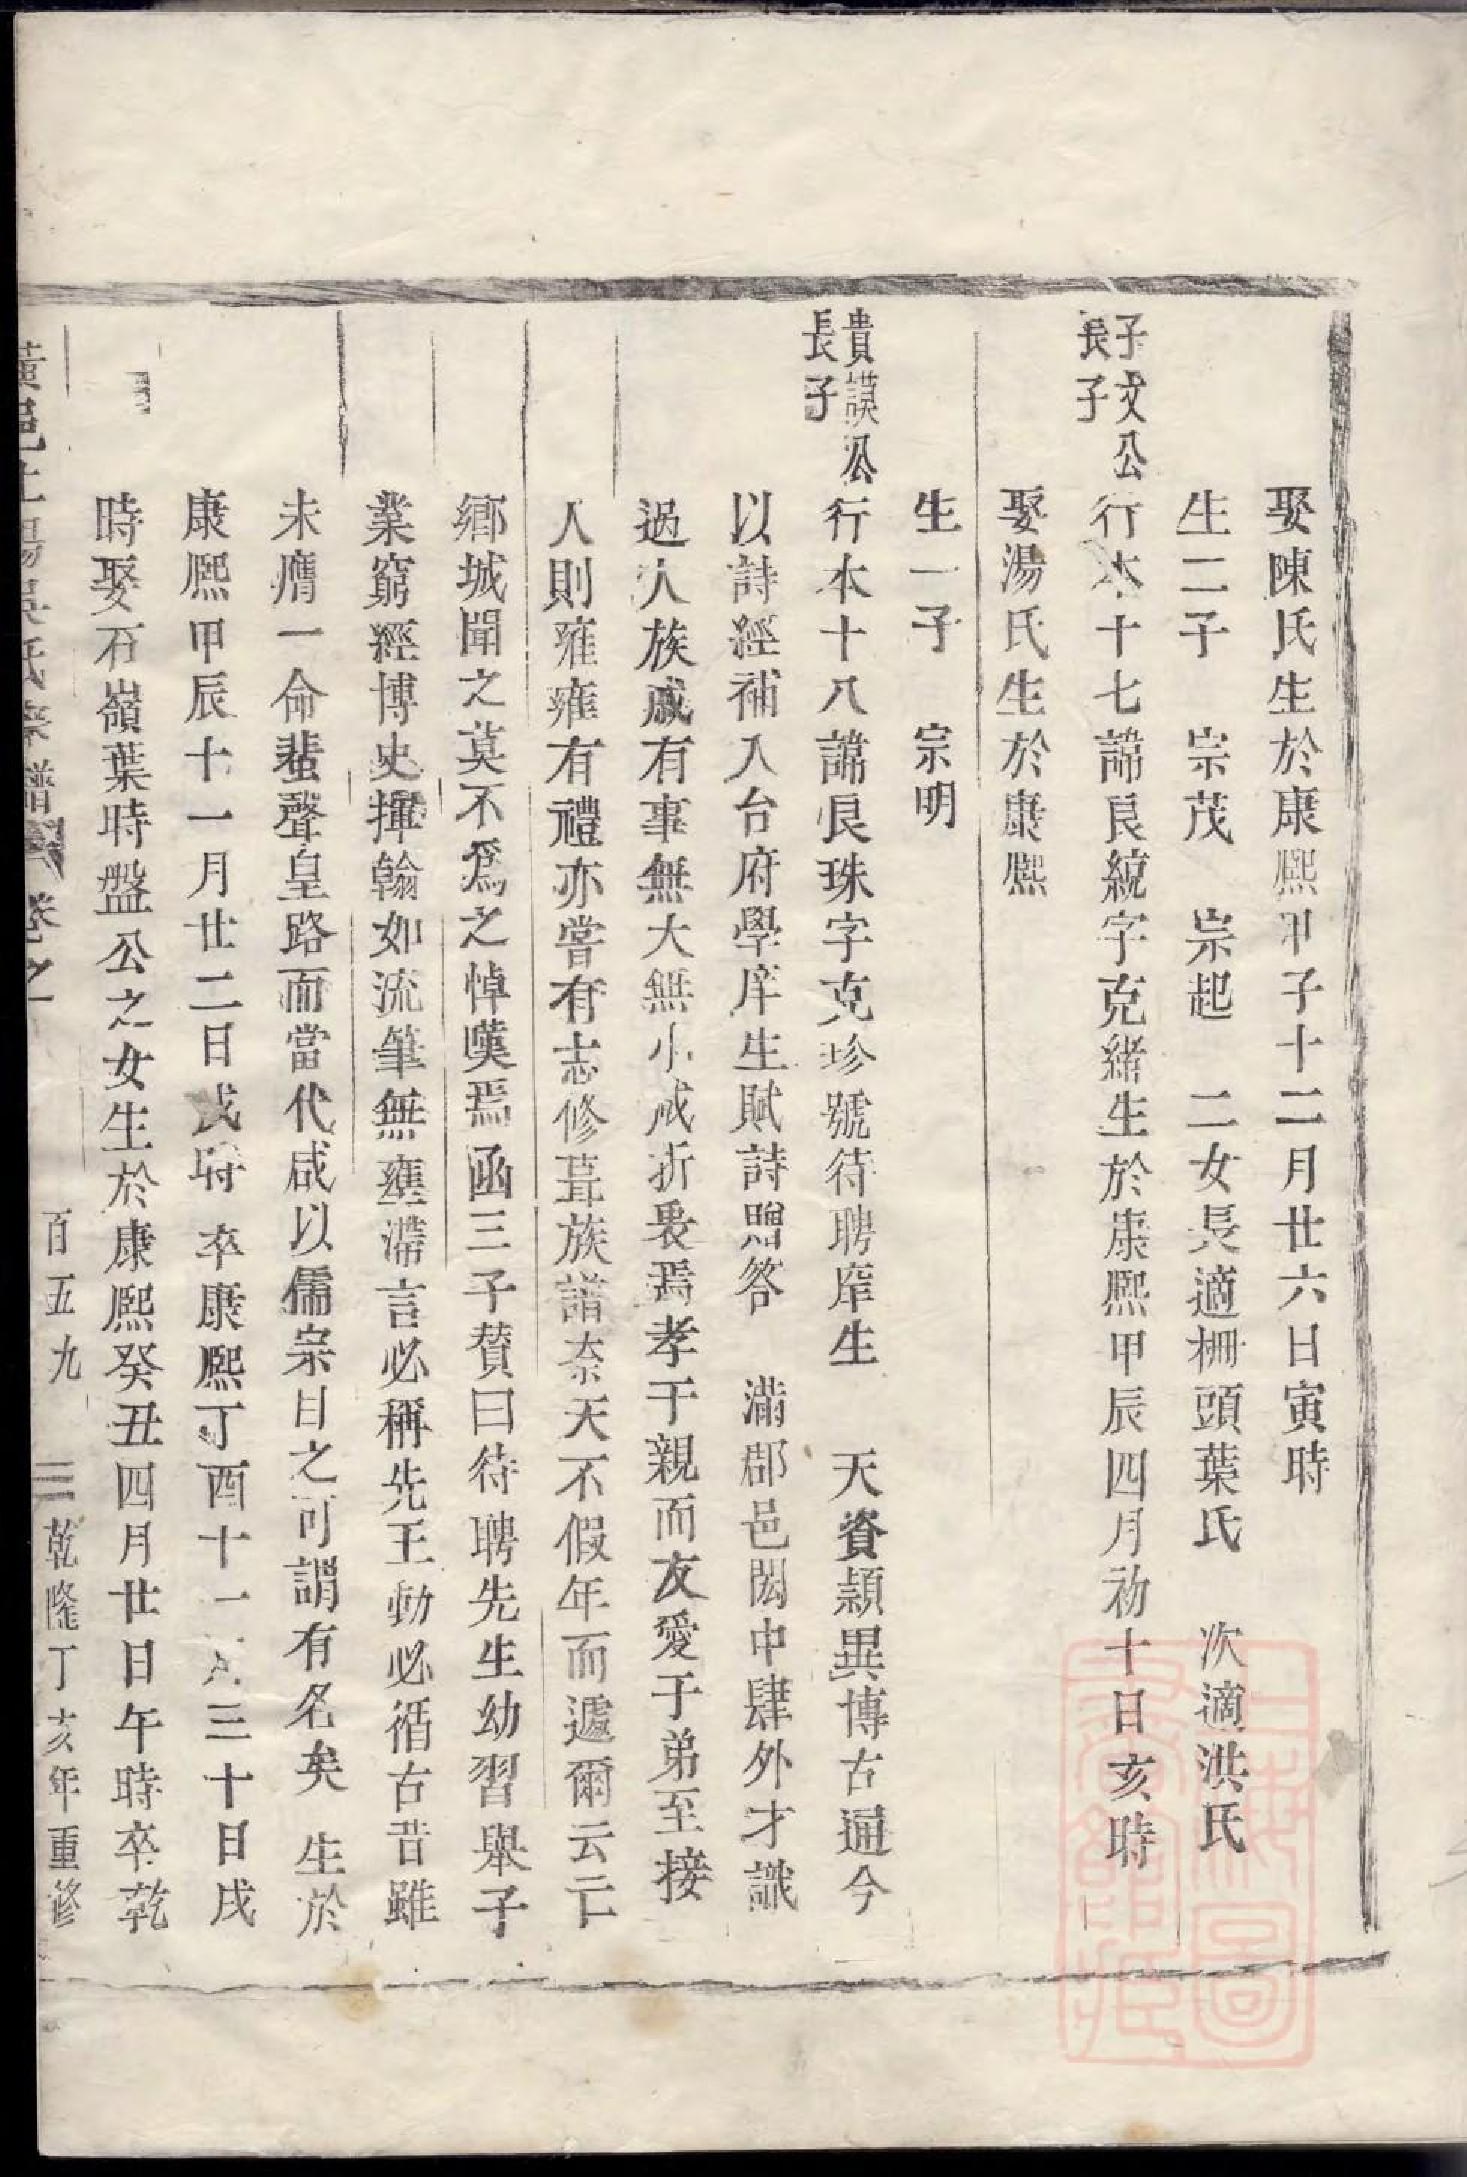 娶陳氏生於康熙甲子十二月廿六日寅時
生二子　宗茂　宗起　二女長適柵頭葉氏　次適洪氏
子文公
長子
行本十七諱良統字克緒生於康熙甲辰四月初十日亥時
娶湯氏生於康熙
生一子　宗明
貴謨公
長子
行本十八諱良珠字克珍號待聘庠生　天資穎異博古通今
以詩經補入台府學庠生賦詩贈答　滿郡邑閎中肆外才識
過人族戚有事無大無小咸折衷焉孝于親而友愛于弟至接
人則雍雍有禮亦嘗有志修葺族譜奈天不假年而遽爾云亡
鄉城聞之莫不為之悼嘆焉函三子贊曰待聘先生幼習舉子
業窮經博史揮翰如流筆無壅滯言必稱先王動必循古昔雖
未膺一命蜚聲皇路而當代咸以儒宗目之可謂有名矣　生於
康熙甲辰十一月廿二日戌時　卒康熙丁酉十一月三十日戌
時娶石嶺葉時盤公之女生於康熙癸丑四月廿日午時卒乾
黃邑上暘吳氏宗譜　卷之一　百五九　乾隆丁亥年重修
上海圖
書館藏